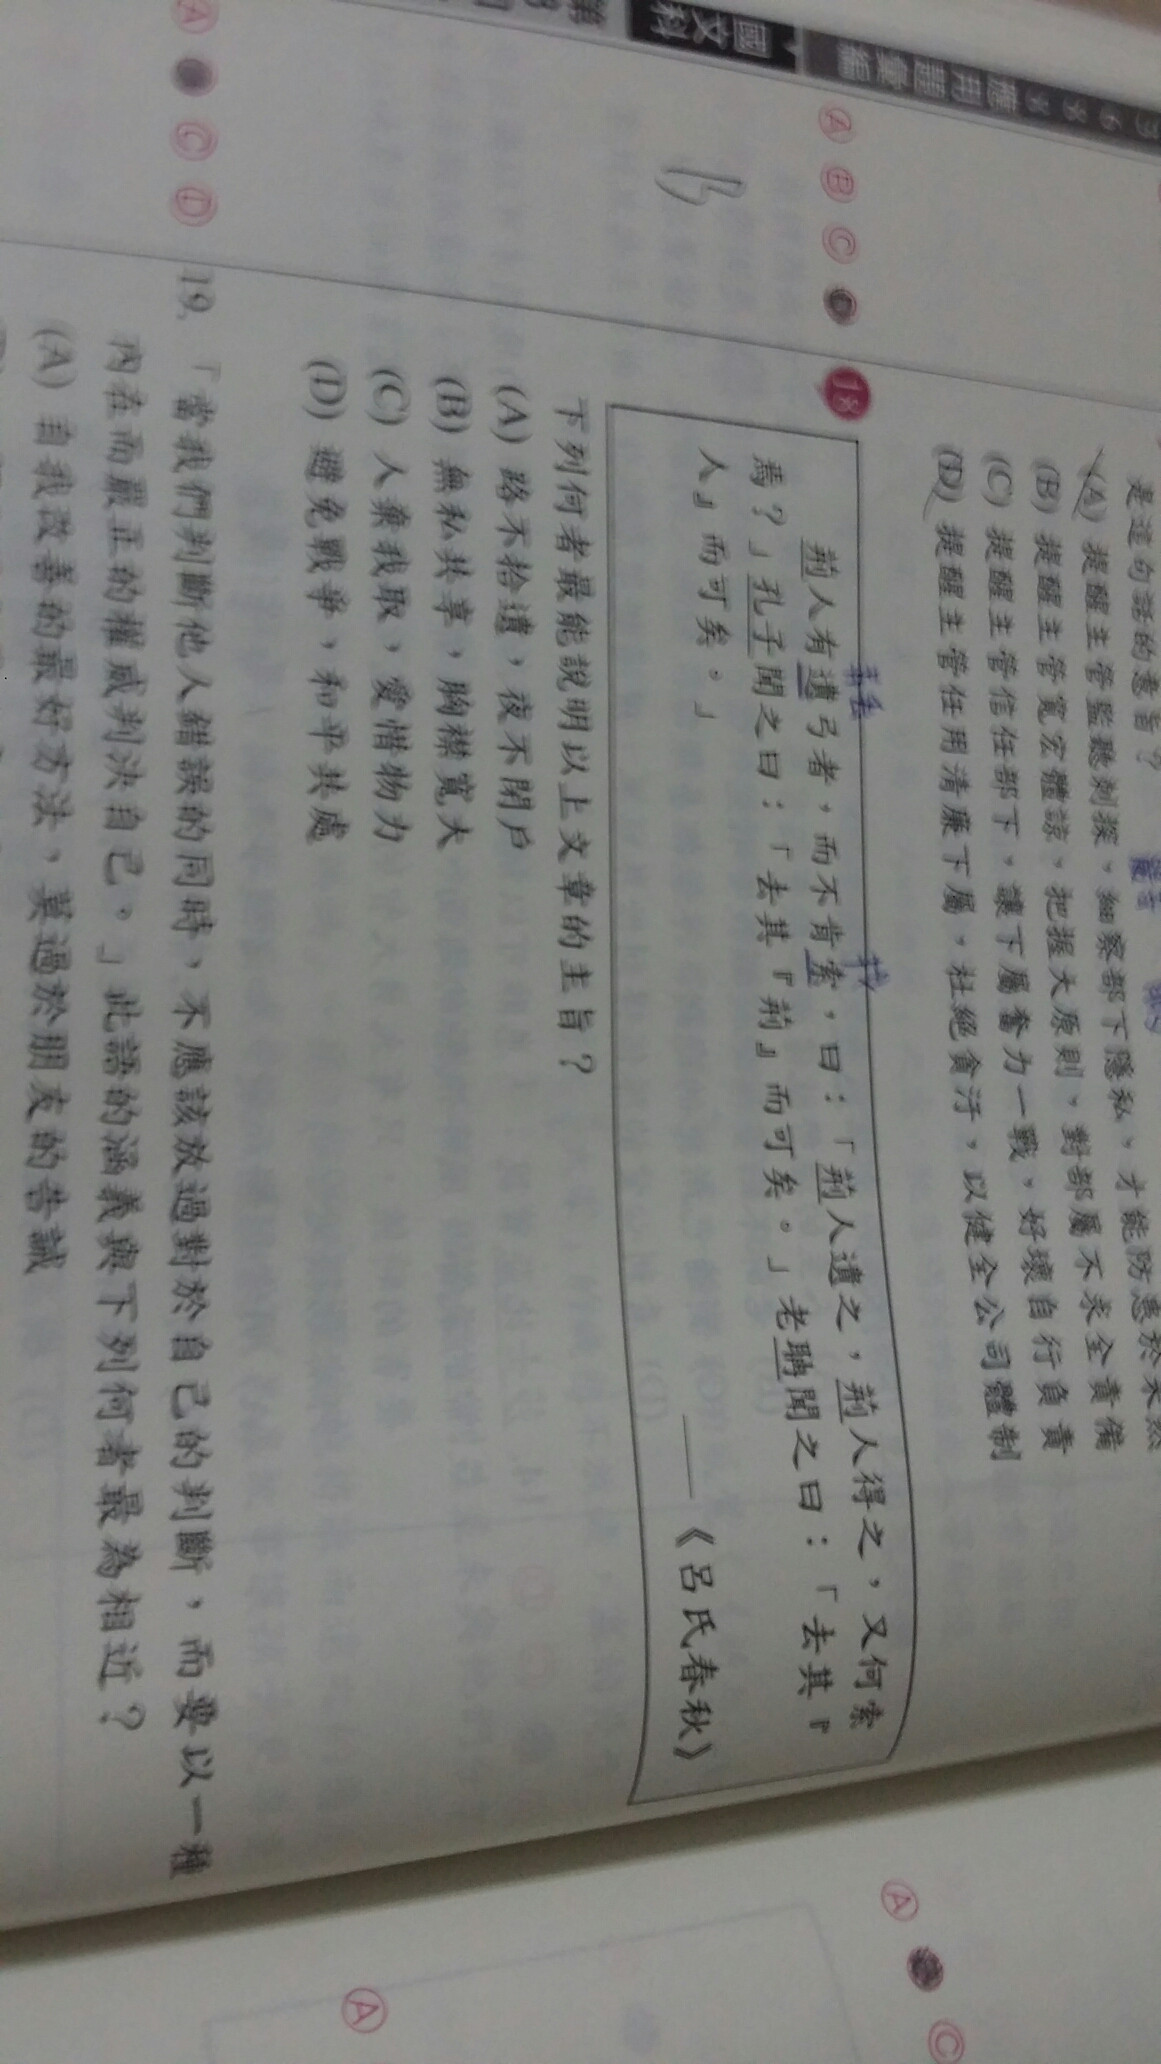 應用題彙編
國文科
是這句話的意旨？
(A) 提醒主管監聽刺探，細察部下隱私，才能防患於未然
(B) 提醒主管寬宏體諒，把握大原則，對部屬不求全責備
(C) 提醒主管信任部下，讓下屬奮力一戰，好壞自行負責
(D) 提醒主管任用清廉下屬，杜絕貪汙，以健全公司體制
Ⓐ Ⓑ Ⓒ
18
荊人有遺弓者，而不肯索，曰：「荊人遺之，荊人得之，又何索
焉？」孔子聞之曰：「去其『荊』而可矣。」老聃聞之曰：「去其『
人』而可矣。」
——《呂氏春秋》
B
下列何者最能說明以上文章的主旨？
(A) 路不拾遺，夜不閉戶
(B) 無私共享，胸襟寬大
(C) 人棄我取，愛惜物力
(D) 避免戰爭，和平共處
Ⓐ Ⓒ Ⓓ
19. 「當我們判斷他人錯誤的同時，不應該放過對於自己的判斷，而要以一種
內在而嚴正的權威判決自己。」此語的涵義與下列何者最為相近？
(A) 自我改善的最好方法，莫過於朋友的告誡
Ⓐ Ⓒ
Ⓐ